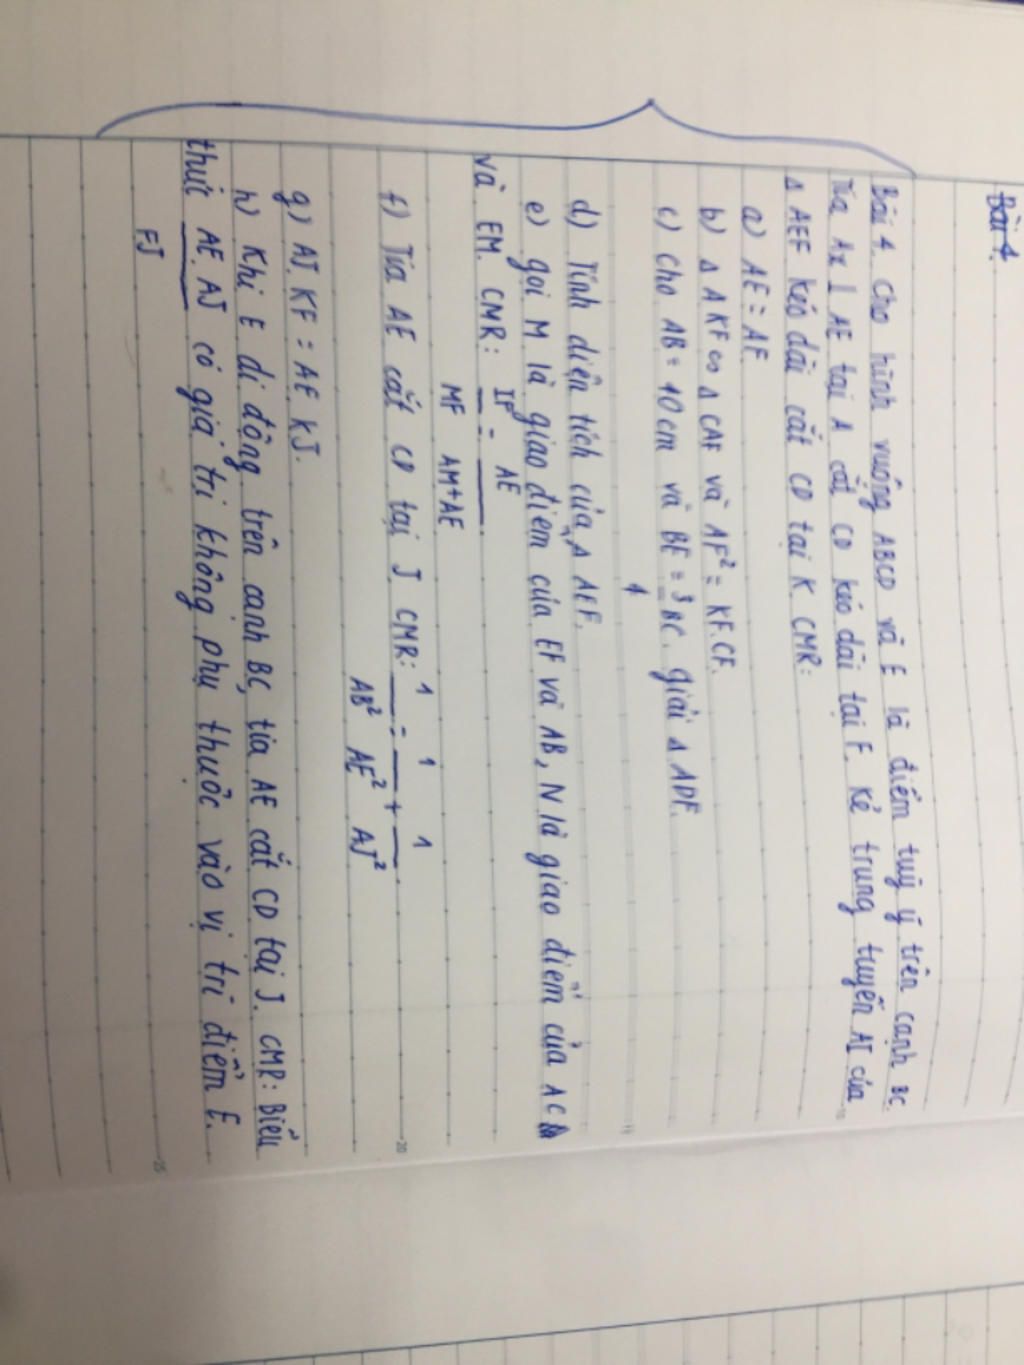 Bài 4.
Bài 4. Cho hình vuông ABCD và E là điểm tuỳ ý trên cạnh BC.
Tia Ax ⊥ AE tại A cắt CD kéo dài tại F. Kẻ trung tuyến AI của
Δ AEF kéo dài cắt CD tại K. CMR:
a) AE = AF.
b) Δ AKF ∽ Δ CAF và AF² = KF.CF.
c) Cho AB = 10cm và BE = 3/4 BC. giải Δ ADF.
d) Tính diện tích của Δ AEF.
e) gọi M là giao điểm của EF và AB, N là giao điểm của AC
và EM. CMR: IF/MF = AE/AM+AE
f) Tia AE cắt CD tại J. CMR: 1/AB² = 1/AE² + 1/AJ².
g) AJ. KF = AE. KJ.
h) Khi E di động trên cạnh BC, tia AE cắt CD tại J. CMR: Biểu
thức AE.AJ/FJ có giá trị không phụ thuộc vào vị trí điểm E.
10
15
20
25